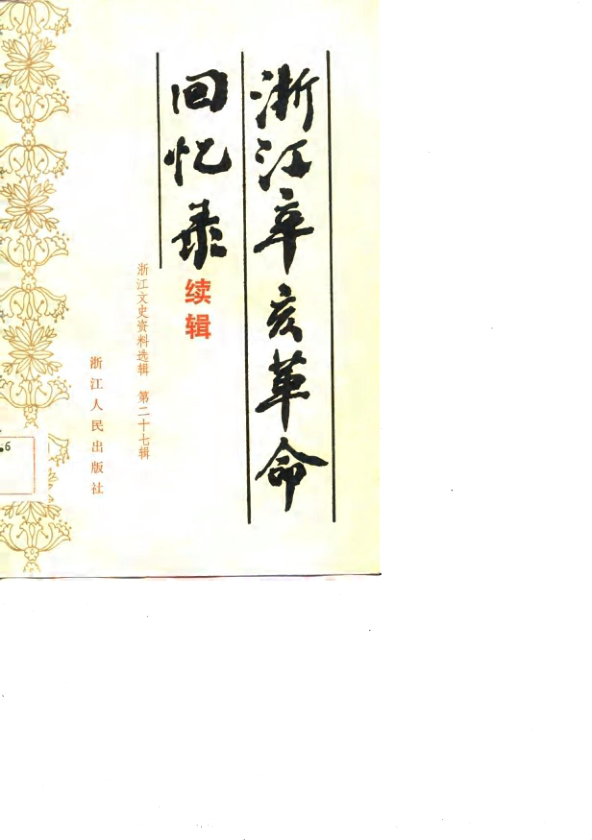 浙江辛亥革命
回忆录
续辑
浙江文史资料选辑 第二十七辑
浙江人民出版社
6